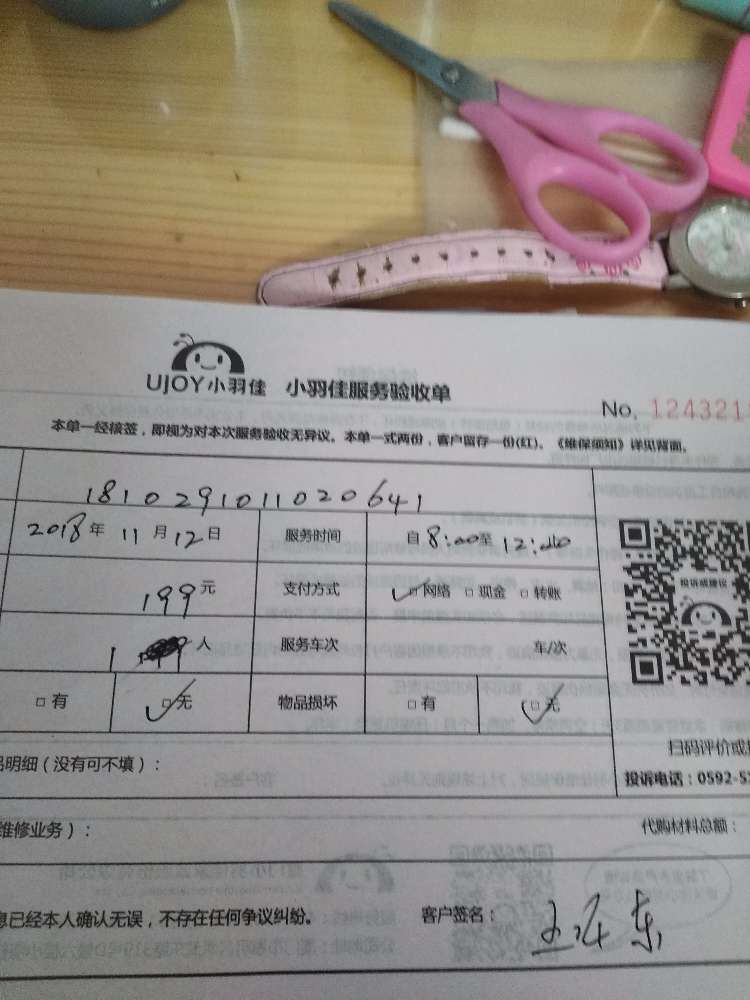 UJOY小羽佳 小羽佳服务验收单
No. 1243211
本单一经核签，即视为对本次服务验收无异议。本单一式两份，客户留存一份(红)。《维保细则》详见背面。
1810291011020641
2018年 11月12日 服务时间 自 8:00至 12:00
199元 支付方式 □网络 □现金 □转账
1 人 服务车次 车/次
□有 □无 物品损坏 □有 □无
投诉或建议
扫码评价或
品明细（没有可不填）：
投诉电话：0592-5
维修业务）：
代购材料总额：
息已经本人确认无误，不存在任何争议纠纷。 客户签名：